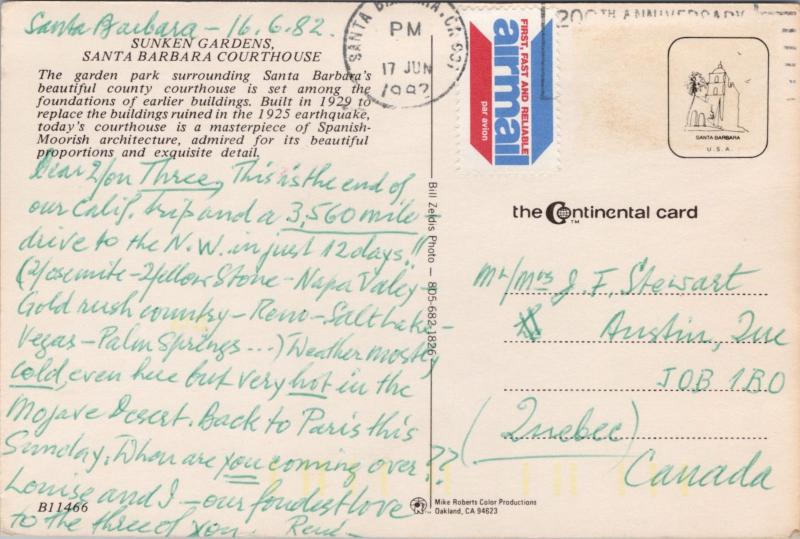 Santa Barbara - 16.6.82.
SUNKEN GARDENS,
SANTA BARBARA COURTHOUSE
The garden park surrounding Santa Barbara's
beautiful county courthouse is set among the
foundations of earlier buildings. Built in 1929 to
replace the buildings ruined in the 1925 earthquake,
today's courthouse is a masterpiece of Spanish-
Moorish architecture, admired for its beautiful
proportions and exquisite detail.
Dear You Three, This is the end of
our Calif. trip and a 3,560 mile
drive to the N.W. in just 12 days!!
(Yosemite - Yellow Stone - Napa Valey -
Gold rush country - Reno - Salt Lake -
Vegas - Palm Springs ...) Weather mostly
cold, even here but very hot in the
Mojave Desert. Back to Paris this
Sunday. When are you coming over??
Louise and I - our fondest love
to the three of you. René -
B11466
Bill Zeldis Photo — 805-682-1826
SANTA BARBARA, CA 931
PM
17 JUN
1982
200TH ANNIVERSARY
FIRST, FAST AND RELIABLE
airmail
par avion
SANTA BARBARA
U.S.A.
the Continental card
TM
Mr/Mrs J. F. Stewart
Austin, Que
J0B 1B0
(Quebec)
Canada
Mike Roberts Color Productions
Oakland, CA 94623